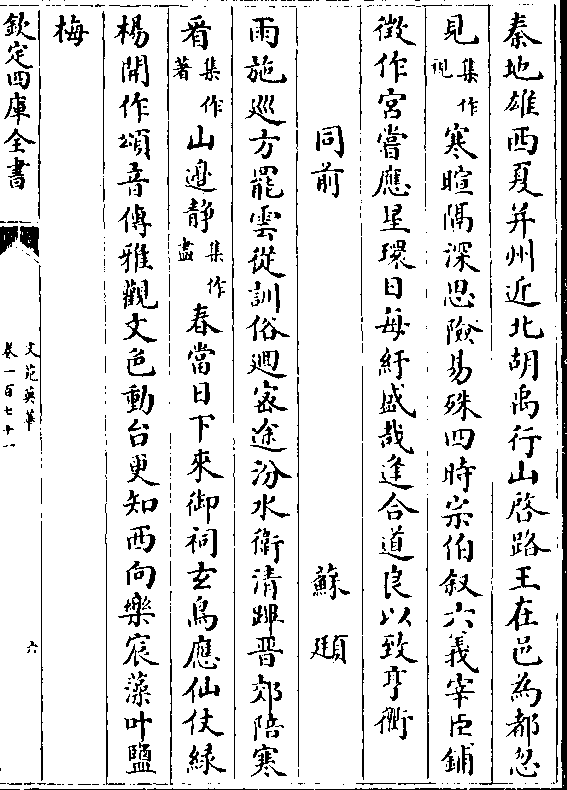 秦地雄西夏并州近北胡禹行山啓路王在邑為都忽
見集作視寒暄隔深思險易殊四時宗伯叙六義宰臣鋪
徴作宮嘗應星環日每紆盛哉逢合道良以致亨衢
同前 蘇頲
雨施巡方罷雲從訓俗廻密途汾水衛清蹕晉郊陪寒
看集作著山邊静集作盡春當日下來御祠玄鳥應仙仗緑
楊開作頌音傳雅觀文色動台更知西向樂宸藻叶鹽
梅
欽定四庫全書
文苑英華
卷一百七十一
六